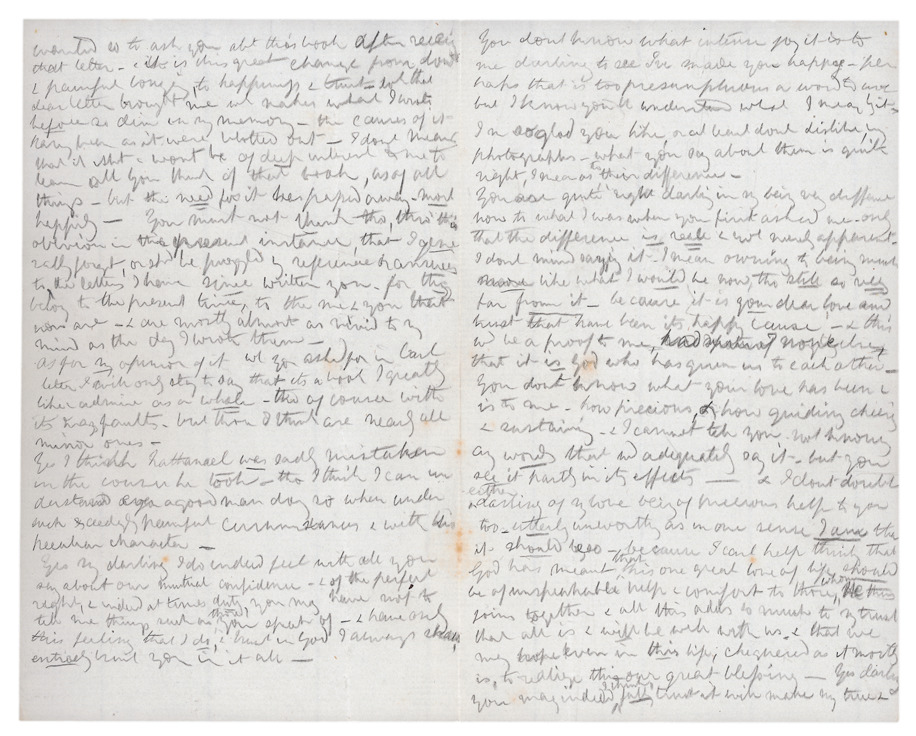 wanted so to ask you abt this book after receiv
that letter - & it is this great change from doubt
& painful to happiness & trust
dear letter brought me wh makes what I wrote
before so dim in my memory - the causes of it
having been as it were blotted out - I dont mean
that it isnt & wont be of deep interest to me to
learn all you think of that book, as of all
things - but the need for it has passed away - most
happily - You must not think tho', thro' this
oblivion in the present instance, that I gene
rally forget, or shd be puzzled by references or answers
to the letters I have since written you - for they
belong to the present time, to the me & you that
now are - & are mostly almost as vivid to my
mind as the day I wrote them -
As for my opinion of it wh you asked for in last
letter I will only stay to say that its a book I greatly
like & admire as a whole - tho' of course with
its faults - but them I think are nearly all
minor ones -
Yes I think Nathanael was sadly mistaken
in the course he took - tho I think I can un
derstand a good man doing so when under
such exceedingly painful circumstances & with his
peculiar character -
Yes my darling I do indeed feel with all you
say about our mutual confidence - & of the perfect
right, & indeed at times duty, you may have not to
tell me things such as you speak of - & have only
this feeling that I do, & trust in God I always shall,
entirely trust you in it all -
You dont know what intense joy it is to
me darling to see I've made you happy - per
haps that is too presumptuous a word to use
but I know you'll understand what I mean by it -
I'm so glad you like or at least dont dislike my
photographs - what you say about them is quite
right, I mean as to their difference -
You are quite right darling in my being very different
now to what I was when you first asked me - only
that the difference is real & not merely apparent -
I dont mind saying it - I mean owning to being much
more like what I would be now, tho still so very
far from it - because it is your dear love and
trust that have been its happy cause - & this
wd be a proof to me,
that it is God who has given us to each other -
You dont know what your love has been &
is to me - how precious, & how guiding cheering
& sustaining - & I cannot tell you - not knowing
any words that wd adequately say it - but you
see it partly in its effects - & I dont doubt
either
darling of my love being of precious help to you
too - utterly unworthy as in one sense I am tha
it should be so - because I cant help think that
God has meant that this one great love of life should
be of unspeakable help & comfort to those, whom He thus
joins together & all this adds so much to my trust
that all is & will be well with us, & that we
may even in this life, chequered as it mostly
is, to realize this our great blessing - Yes darling
you may indeed I think fully trust it will make my true &